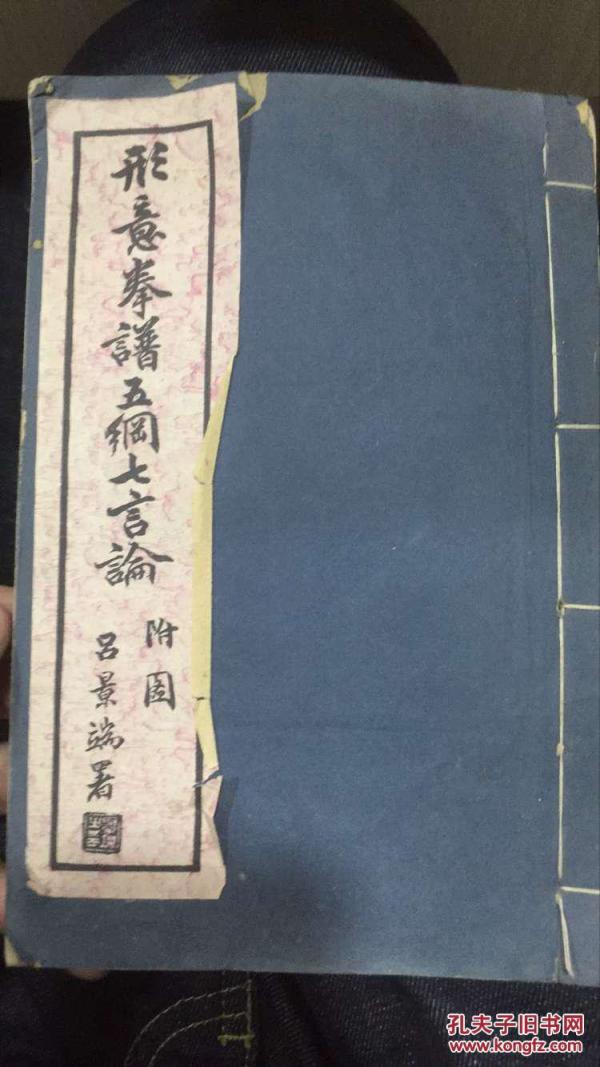 形意拳譜五綱七言論
附圖
呂景端署
孔夫子旧书网
www.kongfz.com